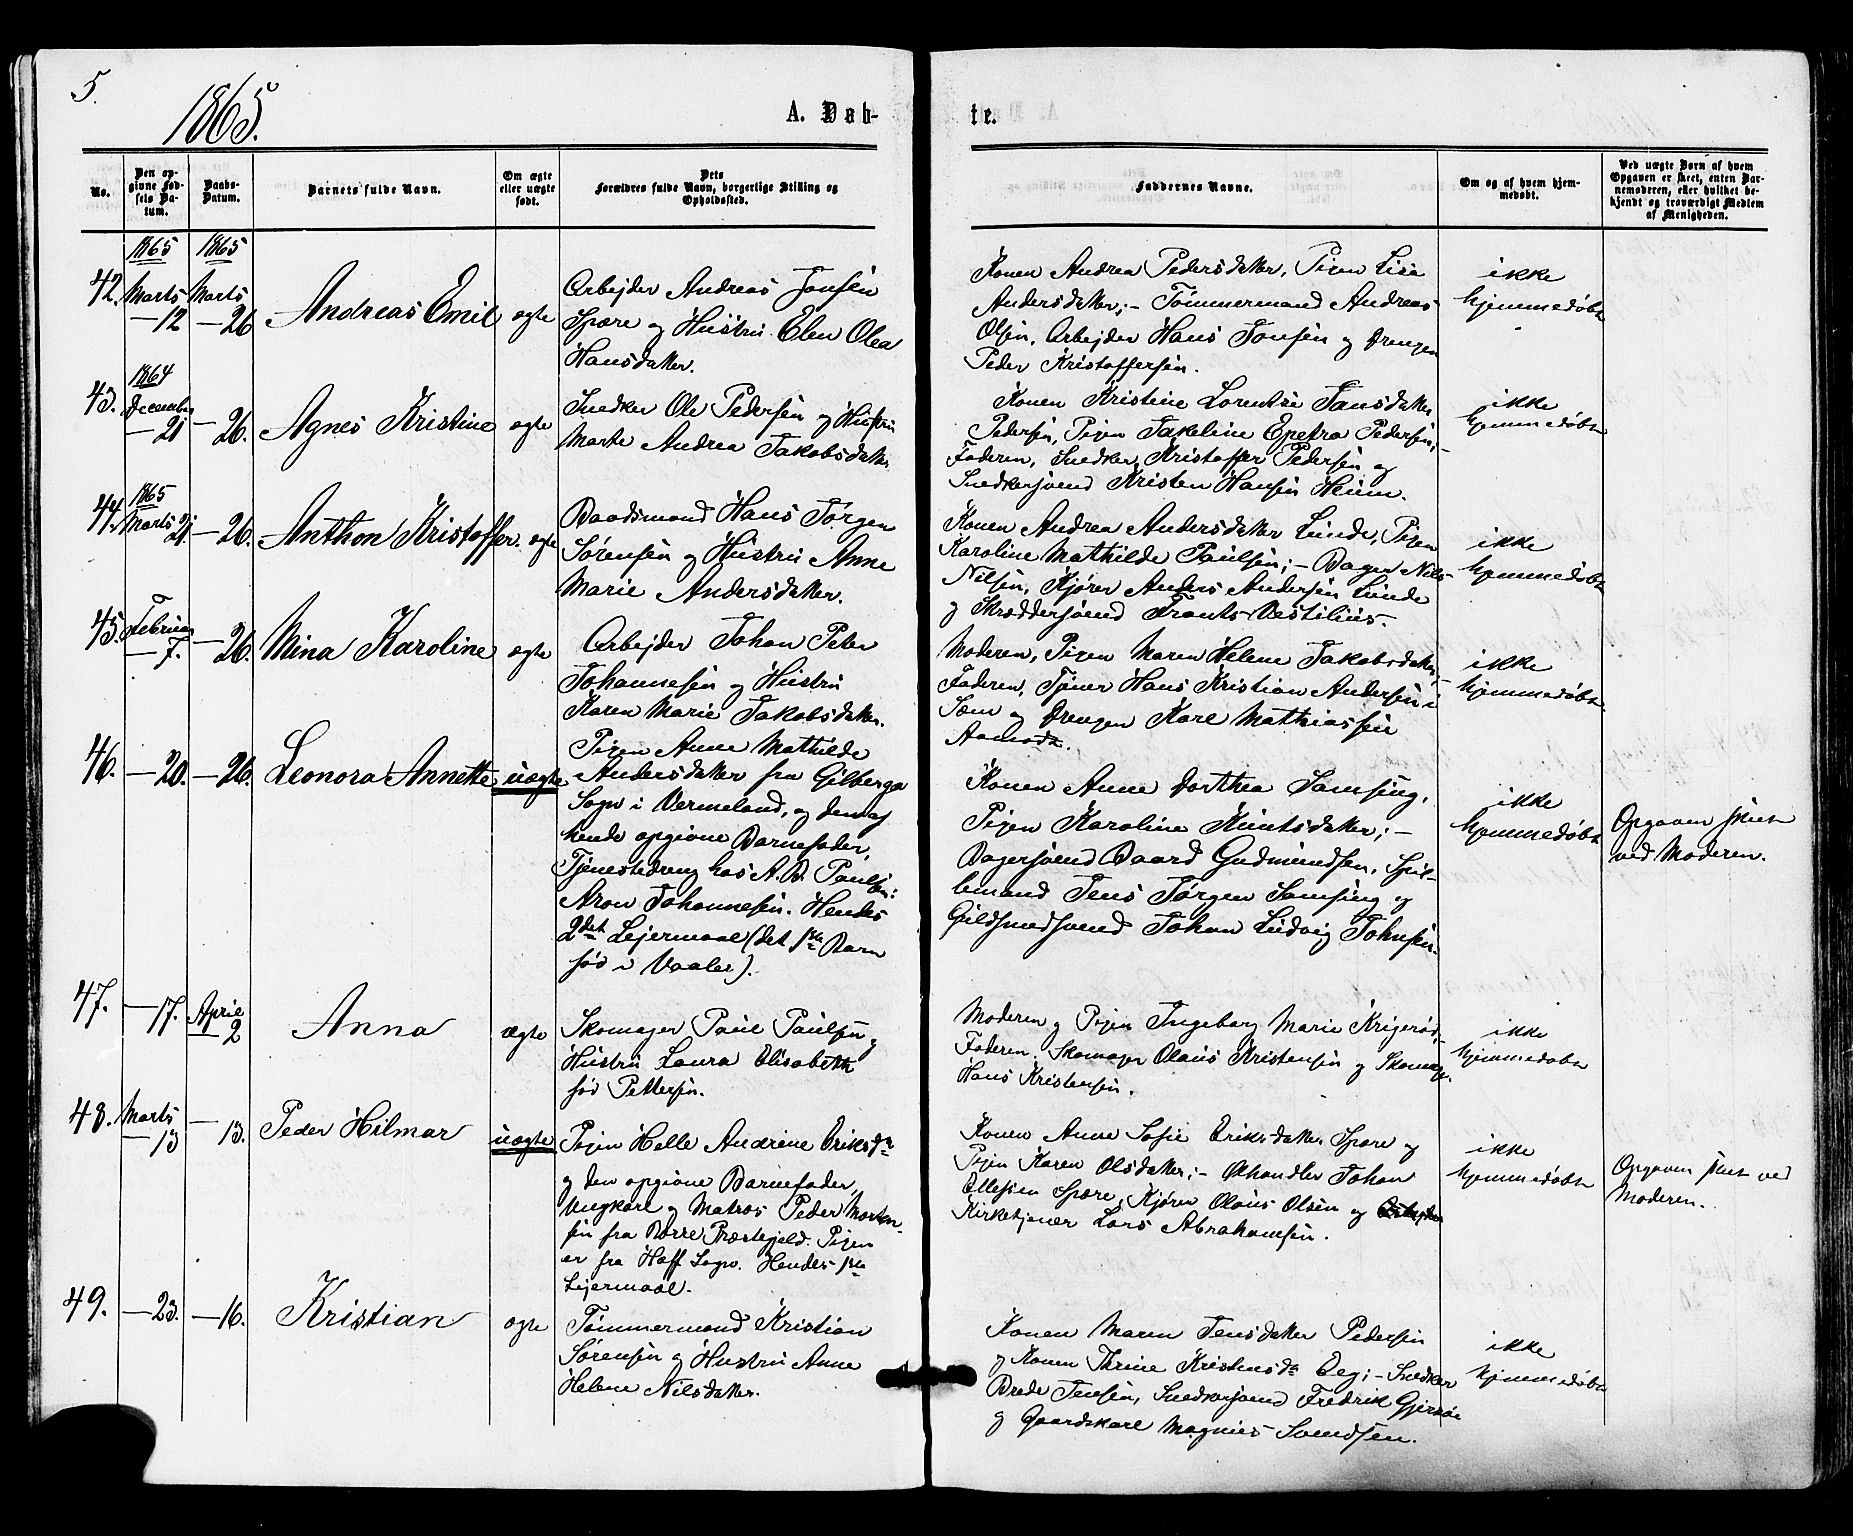 5.
1865.
A. Døb-
te.
No.
Den op-
givne Fød-
sels Da-
tum.
Daabs-
Datum.
Barnets fulde Navn.
Om ægte
eller uægte
født.
Dets
Forældres fulde Navn, borgerlige Stilling og
Opholdssted.
Faddernes Navne.
Om og af hvem hjem-
medøbt.
Ved uægte Børn af hvem
Opgaven er skeet, enten Bar-
nemoderen, eller hvilket be-
kjendt og troværdigt Medlem
af Menigheden.
1865 1865
42. Marts Marts
—12 —26 Andreas Emil ægte
Arbejder Andreas Jonsen
Spære og Hustru Elen Olea
Hansdatter.
Konen Andrea Pedersdatter, Pigen Lisa
Andersdatter;- Tømmermand Andreas
Olsen, Arbejder Hans Jonsen og Drengen
Peder Kristoffersen.
ikke
hjemmedøbt
1864
43. December
—21 —26. Agnes Kristine ægte
Snedker Ole Pedersen og Hustru
Marte Andrea Jakobsdatter.
Konen Kristine Lorentse Jansdatter
Pedersen, Pigen Jakeline Epetra Pedersen,-
Faderen, Snedker Kristoffer Pedersen og
Snedkersvend Kristen Hansen Heum.
ikke
hjemmedøbt
1865
44. Marts 21. —26. Anthon Kristoffer. ægte
Baadsmand Hans Jørgen
Sørensen og Hustru Anne
Marie Andersdatter.
Konen Andrea Andersdatter Lunde, Pigen
Karoline Mathilde Paulsen;- Bager Nils
Nilsen, Kjører Anders Andersen Lunde
og Skræddersvend Frants Vestilius.
ikke
hjemmedøbt
45. Februar
—7. —26. Mina Karoline ægte
Arbejder Johan Peter
Johannesen og Hustru
Karen Marie Jakobsdatter.
Moderen, Pigen Maren Helene Jakobsdatter,-
Faderen, Tjener Hans Kristian Andersen i
Sem og Drengen Karl Mathiassen
Aamodt.
ikke
hjemmedøbt.
46. —20. —26. Leonora Annette uægte
Pigen Anne Mathilde
Andersdatter fra Gilberga
Sogn i Vermeland, og den af
hende opgivne Barnefader,
Tjenestedreng hos A. B. Paulsen:
Aron Johannesen. Hendes
2det Lejermaal (det 1ste Barn
fød i Vaaler).
Konen Anne Dorthea Samsing,
Pigen Karoline Knutsdatter;-
Bagersvend Baard Gudmundsen, Spil-
lemand Jens Jørgen Samsing og
Guldsmedsvend Johan Ludvig Johnsen.
ikke
hjemmedøbt
Opgaven skeet
ved Moderen.
47. —17. April
2 Anna ægte
Skomager Paul Paulsen og
Hustru Laura Elisabeth
fød Pettersen.
Moderen og Pigen Ingeborg Marie Krigerød,-
Faderen, Skomager Olaus Kristensen og Skomager
Hans Kristensen.
ikke
hjemmedøbt
48. Marts
—13 —13. Peder Hilmar uægte
Pigen Helle Andrine Eriksdr
og den opgivne Barnefader,
Ungkarl og Matros Peder Morten-
sen fra Borre Præstegjeld. Pigen
er fra Hoff Sogn. Hendes 1ste
Lejermaal.
Konen Anne Sofie Eriksdatter Spære og
Pigen Karen Olsdatter;- Ølhandler Johan
Ellefsen Spære, Kjører Olaus Olsen og
Kirketjener Lars Abrahamsen.
ikke
hjemmedøbt
Opgaven skeet ved
Moderen.
49. —23. —16. Kristian ægte
Tømmermand Kristian
Sørensen og Hustru Anne
Helene Nilsdatter.
Konen Maren Jensdatter Pedersen
og Konen Thrine Kristensdr Eeg;- Snedker
Brede Jensen, Snedkersvend Fredrik Gjersøe
og Gaardskarl Magnus Svendsen.
ikke
hjemmedøbt